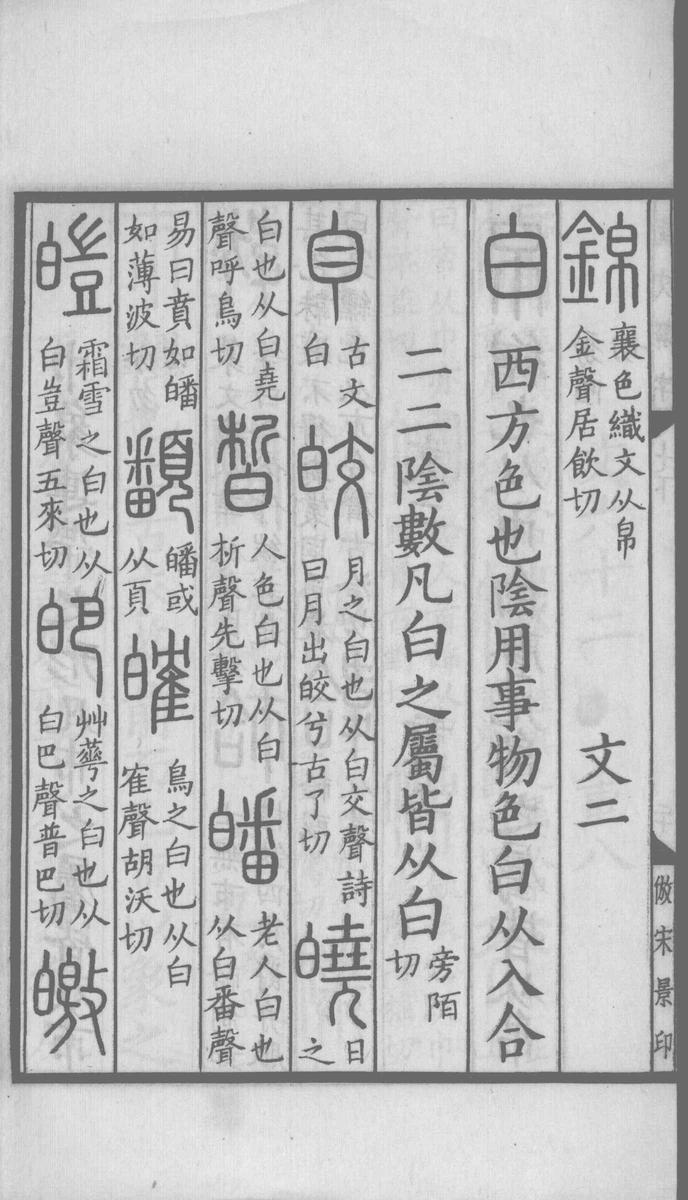 錦襄色織文从帛金聲居飲切 文二
白西方色也陰用事物色白从入合
二二陰數凡白之屬皆从白旁陌切
𦣺古文白 皎月之白也从白交聲詩曰月出皎兮古了切 曉日之
白也从白堯聲呼鳥切 皙人色白也从白析聲先擊切 皤老人白也从白番聲
易曰賁如皤如薄波切 𩕏皤或从頁 㿥鳥之白也从白隺聲胡沃切
皚霜雪之白也从白豈聲五來切 皅艸蕚之白也从白巴聲普巴切 皦
倣宋景印